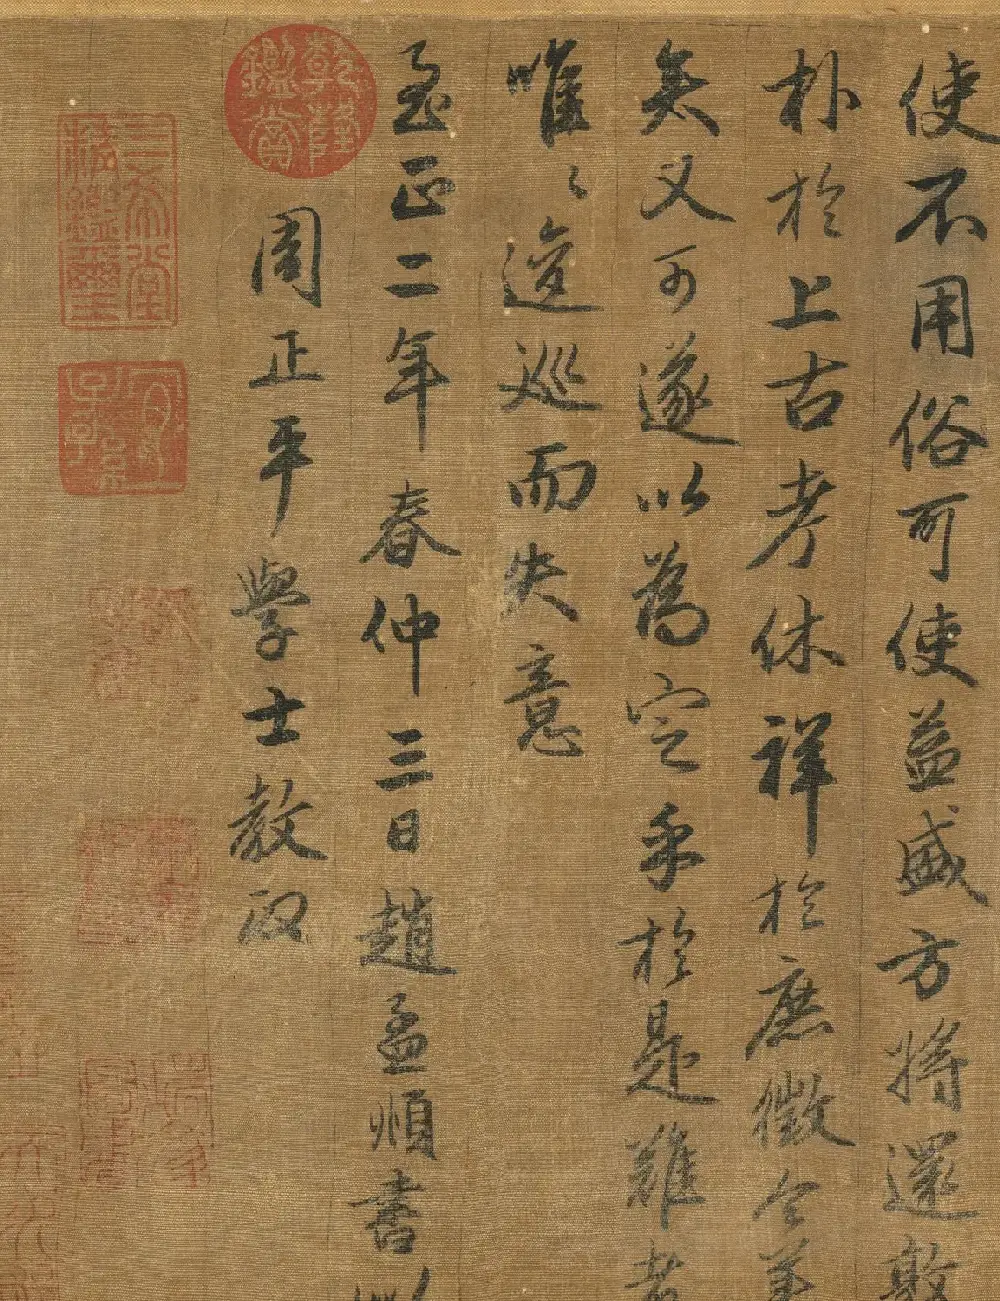 使不用俗可使益盛方將還敦
朴於上古考休祥於庶徵今
矣又可遂以為定乎於是難者
唯〻逡巡而失意
至正二年春仲三日趙孟頫書以
周正平學士教
乾隆鑑賞
三希堂精鑑璽
宜子孫